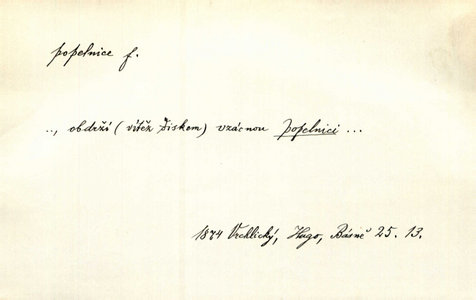 popelnice f.
.., obdrží (vítěz diskem) vzácnou popelnici ...
1874 Vrchlický, Hugo, Básně 25. 13.